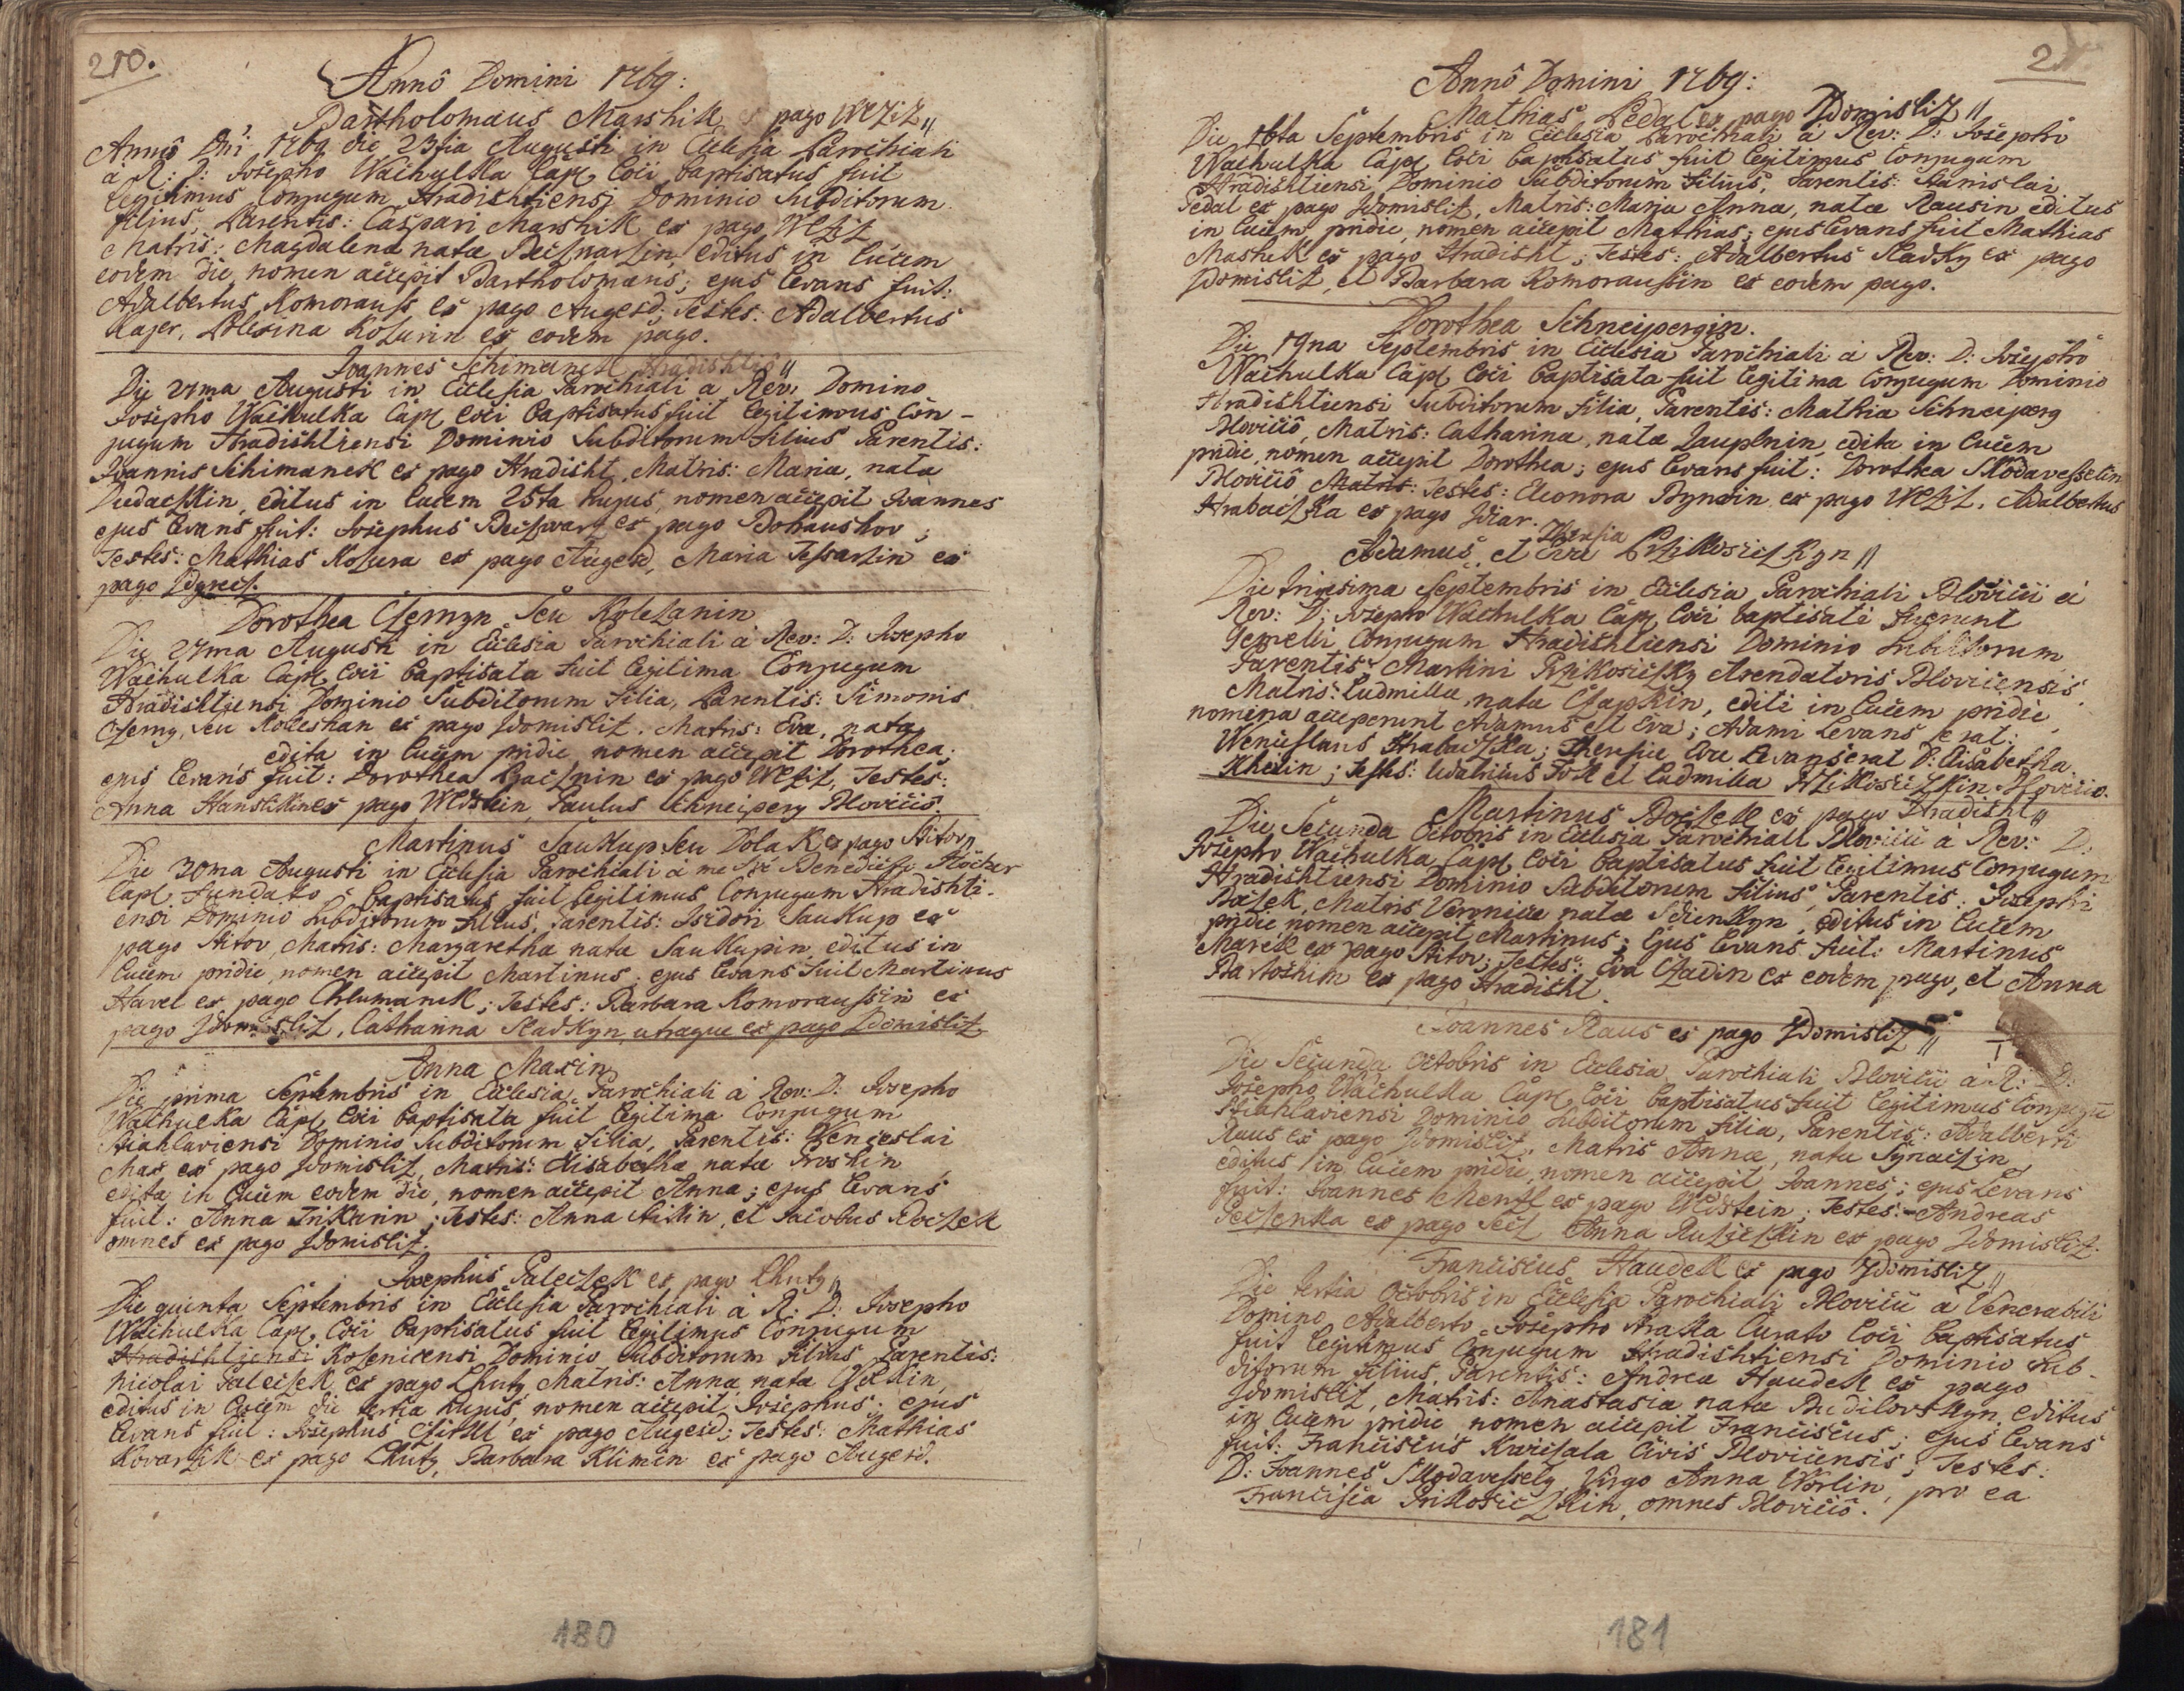 210.
Annô Domini 1769:
Bartholomæus Marshik pago Weziz,,
Annô Dni 1769 die 23tia Augusti in Ecclesia Parochiali
a R: D: Josepho Wachulka Capl. Loci baptisatus fuit
legitimus Conjugum Hradishtiensi Dominio Subditorum
filius, Parentis: Caspari Marshik ex pago Weziz
Matris: Magdalena nata editus in lucem
eodem die, nomen accepit Bartholomæus; ejus levans fuit:
Adalbertus Komorauss ex pago Augezd; Testes: Adalbertus
Kajer, Polexina Kozurin ex eodem pago.
Joannes Schimanek Hradishtio,,
Die 27ma Augusti in Ecclesia Parochiali a Rev: Domino
Josepho Wachulka Capl. Loci baptisatus fuit legitimus Con-
jugum Hradishtiensi Dominio Subditorum filius Parentis:
Joannis Schimanek ex pago Hradisht, Matris: Maria, nata
Dudaczkin, editus in lucem 25ta hujus, nomen accepit Joannes
ejus levans fuit: Josephus Beczwarz ex pago Bohaushov;
Testes: Mathias Kozura ex pago Augezd, Maria Tessarzin ex
pago
Dorothea Czernyn Seu Kolezanin
Die 27ma Augusti in Ecclesia Parochiali a Rev: D: Josepho
Wachulka Capl. Loci baptisata fuit legitima Conjugum
Hradishtiensi Dominio Subditorum filia, Parentis: Simonis
Czerny, Seu Koleshan ex pago Zdomisliz. Matris: Eva, nata
edita in lucem pridie nomen accepit Dorothea;
ejus levans fuit: Dorothea ex pago Weziz, Testes:
Anna Hanslikin ex pago Wldstein, Paulus Schneiperg Blovicio
Martinus Saukup Seu Dolak ex pago Stitov,,
Die 30ma Augusti in Ecclesia Parochiali a me
Capl. Fundato baptisatus fuit legitimus Conjugum Hradishti-
ensi Dominio Subditorum filius, Parentis: Isidori Saukup ex
pago Stitov, Matris: Margaretha nata Saukupin editus in
lucem pridie, nomen accepit Martinus; ejus levans fuit Martinus
Havel ex pago Chlumanek; Testes: Barbara Komoraussin ex
pago Zdomisliz, Catharina Sladkyn, utraque ex pago Zdomisliz
Anna Maxin
Die prima Septembris in Ecclesia Parochiali a Rev: D: Josepho
Wachulka Capl. Loci baptisata fuit legitima Conjugum
Stiahlaviensi Dominio Subditorum filia, Parentis: Wenceslai
Max ex pago Zdomisliz, Matris: Elisabetha nata Proshin
edita in lucem eodem die, nomen accepit Anna; ejus levans
fuit: Anna Trikarin; Testes: Anna Stikin, et Jacobus Boczek
omnes ex pago Zdomisliz.
Josephus Paleczek ex pago Lhuty,,
Die quinta Septembris in Ecclesia Parochiali a R: D: Josepho
Wachulka Capl. Loci baptisatus fuit legitimus Conjugum
Hradishtiensi Kozenicensi Dominio Subditorum filius Parentis:
Nicolai Paleczek ex pago Lhuty, Matris: Anna nata
editus in lucem die tertia hujus, nomen accepit Josephus; ejus
levans fuit: Josephus ex pago Augezd; Testes: Mathias
Kovarzik ex pago Lhuty, Barbara Klimin ex pago Augezd.
180
2
Annô Domini 1769:
Mathias Pedal ex pago Zdomisliz,,
Die 16ta Septembris in Ecclesia Parochiali a Rev: D: Josepho
Wachulka Capl. Loci baptisatus fuit legitimus Conjugum
Hradishtiensi Dominio Subditorum filius, Parentis: Stanislai
Pedal ex pago Zdomisliz, Matris: Maria Anna, nata Rausin editus
in lucem pridie, nomen accepit Mathias; ejus levans fuit Mathias
Mashek ex pago Hradisht; Testes: Adalbertus Sladky ex pago
Zdomisliz, et Barbara Komoraussin ex eodem pago.
Dorothea Schneipergin.
Die 19na Septembris in Ecclesia Parochiali a Rev: D: Josepho
Wachulka Capl. Loci baptisata fuit legitima Conjugum Dominio
Hradishtiensi Subditorum filia, Parentis: Mathia Schneiperg
Blovicio, Matris: Catharina, nata edita in lucem
pridie, nomen accepit Dorothea; ejus levans fuit: Dorothea Skodavesselin
Blovicio Matris: Testes: Eleonora Rynain ex pago Weziz, Adalbertus
Hrabaczka ex pago Zdiar.
Theresia
Adamus et Eva Przikosiczkyn,,
Die trigesima Septembris in Ecclesia Parochiali Blovicii a
Rev: D: Josepho Wachulka Capl. Loci baptisati fuerunt
Gemelli Conjugum Hradishtiensi Dominio Subditorum
Parentis Martini Przikosiczky Arendatoris Bloviciensis
Matris: Ludmilla, nata Czapkin, editi in lucem pridie,
nomina acceperunt Adamus et Eva; Adami levans erat:
Wenceslaus Hrabaczka; Theresiæ Evæ levans erat D: Elisabetha
Khelin; Testes: Udalricus Fok et Ludmilla Przikosiczkin Blovicio.
Martinus Boczek ex pago Hradisht,,
Die Secunda Octobris in Ecclesia Parochiali Blovicii a Rev: D:
Josepho Wachulka Capl. Loci baptisatus fuit legitimus Conjugum
Hradishtiensi Dominio Subditorum filius, Parentis: Josephi
Boczek, Matris Veronica nata editus in lucem
pridie nomen accepit Martinus; Ejus levans fuit: Martinus
Marek ex pago Stitov; Testes: Eva Czadin ex eodem pago, et Anna
Bartoshin ex pago Hradisht.
Joannes Raus ex pago Zdomisliz,,
Die Secunda Octobris in Ecclesia Parochiali Blovicii a R: D:
Josepho Wachulka Capl. Loci baptisatus fuit legitimus Conjugū
Stiahlaviensi Dominio Subditorum filia, Parentis: Adalberti
Raus ex pago Zdomisliz, Matris Anna, nata Synaczin,
editus in lucem pridie, nomen accepit Joannes; ejus levans
fuit: Joannes Menzl ex pago Wldstein; Testes: Andreas
Peczenka ex pago Secz Anna Ruziczkin ex pago Zdomisliz.
Franciscus Haudek ex pago Zdomisliz,,
Die tertia Octobris in Ecclesia Parochiali Blovicii a Venerabili
Domino Adalberto Josepho Straka Curato Loci baptisatus
fuit legitimus Conjugum Hradishtiensi Dominio Sub-
ditorum filius, Parentis: Andrea Haudek ex pago
Zdomisliz, Matris: Anastasia nata editus
in lucem pridie nomen accepit Franciscus; ejus levans
fuit: Franciscus Kwiczala Civis Bloviciensis; Testes:
D: Joannes Skodavessely Virgo Anna Worlin, pro ea
Francisca Prikosiczkin, omnes Blovicio.
181